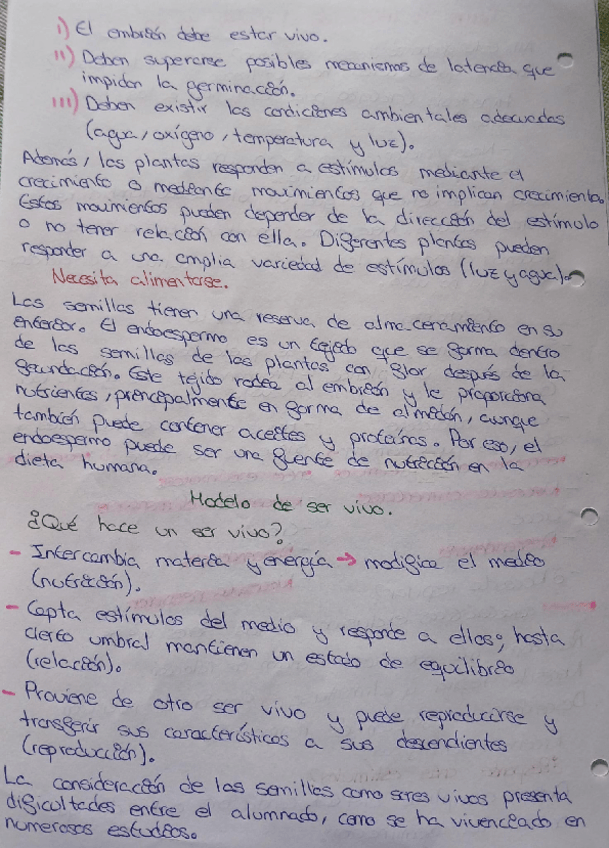 i) El embrión debe estar vivo.
ii) Deben superarse posibles mecanismos de latencia que
impidan la germinación.
iii) Deben existir las condiciones ambientales adecuadas
(agua, oxígeno, temperatura y luz).
Además, las plantas responden a estímulos mediante el
crecimiento o mediante movimientos que no implican crecimiento.
Estos movimientos pueden depender de la dirección del estímulo
o no tener relación con ella. Diferentes plantas pueden
responder a una amplia variedad de estímulos (luz y agua).
Necesita alimentarse.
Las semillas tienen una reserva de almacenamiento en su
interior. El endoespermo es un tejido que se forma dentro
de las semillas de las plantas con flor después de la
fecundación. Este tejido rodea al embrión y le proporciona
nutrientes, principalmente en forma de almidón, aunque
también puede contener aceites y proteínas. Por eso, el
endoespermo puede ser una fuente de nutrición en la
dieta humana.
Modelo de ser vivo.
¿Qué hace un ser vivo?
- Intercambia materia y energía → modifica el medio
(nutrición).
- Capta estímulos del medio y responde a ellos; hasta
cierto umbral mantienen un estado de equilibrio
(relación).
- Proviene de otro ser vivo y puede reproducirse y
transferir sus características a sus descendientes
(reproducción).
La consideración de las semillas como seres vivos presenta
dificultades entre el alumnado, como se ha vivenciado en
numerosos estudios.